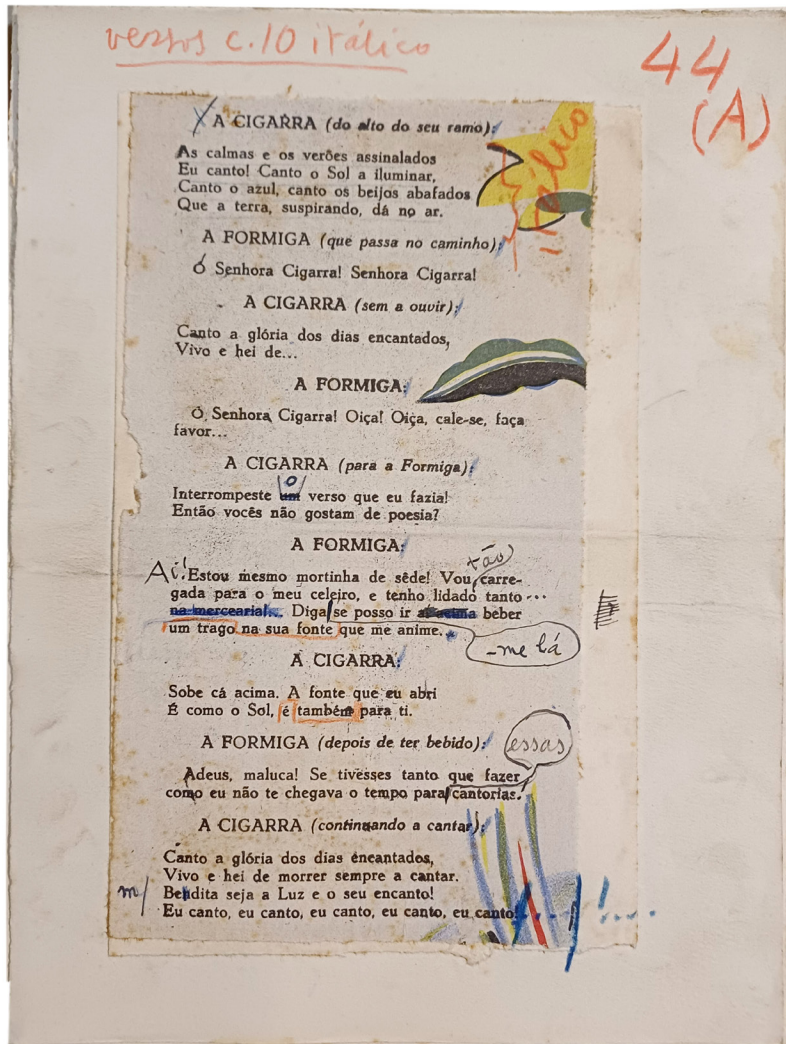 versos c.10 itálico
44
(A)
A CIGARRA (do alto do seu ramo):
itálico
As calmas e os verões assinalados
Eu canto! Canto o Sol a iluminar,
Canto o azul, canto os beijos abafados
Que a terra, suspirando, dá no ar.
A FORMIGA (que passa no caminho):
Ó Senhora Cigarra! Senhora Cigarra!
A CIGARRA (sem a ouvir):
Canto a glória dos dias encantados,
Vivo e hei de...
A FORMIGA:
Ó, Senhora Cigarra! Oiça! Oiça, cale-se, faça
favor...
A CIGARRA (para a Formiga):
o
Interrompeste um verso que eu fazia!
Então vocês não gostam de poesia?
A FORMIGA:
tão
Ai! Estou mesmo mortinha de sêde! Vou carre-
gada para o meu celeiro, e tenho lidado tanto ...
na mercearia!... Diga se posso ir aí acima beber
um trago na sua fonte que me anime.
-me lá
A CIGARRA:
Sobe cá acima. A fonte que eu abri
É como o Sol, é também para ti.
A FORMIGA (depois de ter bebido):
essas
Adeus, maluca! Se tivesses tanto que fazer
como eu não te chegava o tempo para cantorias.
A CIGARRA (continuando a cantar):
Canto a glória dos dias encantados,
Vivo e hei de morrer sempre a cantar.
m/ Bendita seja a Luz e o seu encanto!
Eu canto, eu canto, eu canto, eu canto, eu canto!...